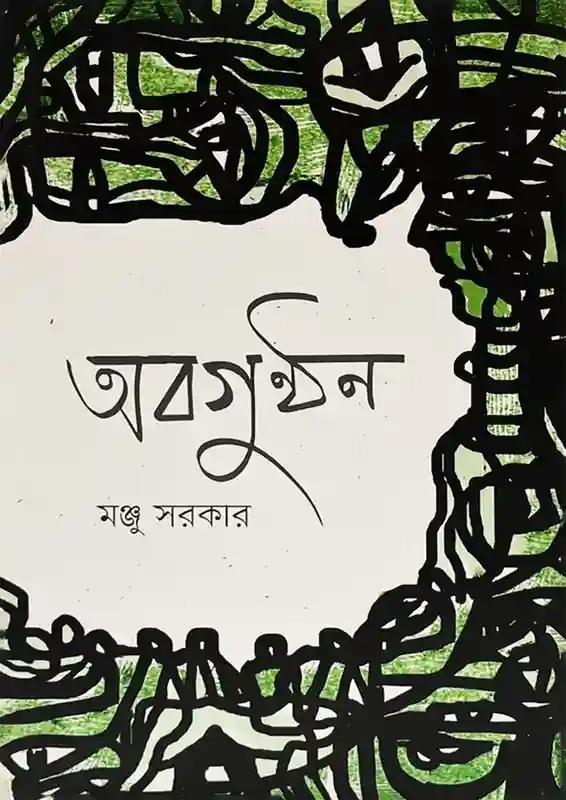 অবগুণ্ঠন
মঞ্জু সরকার